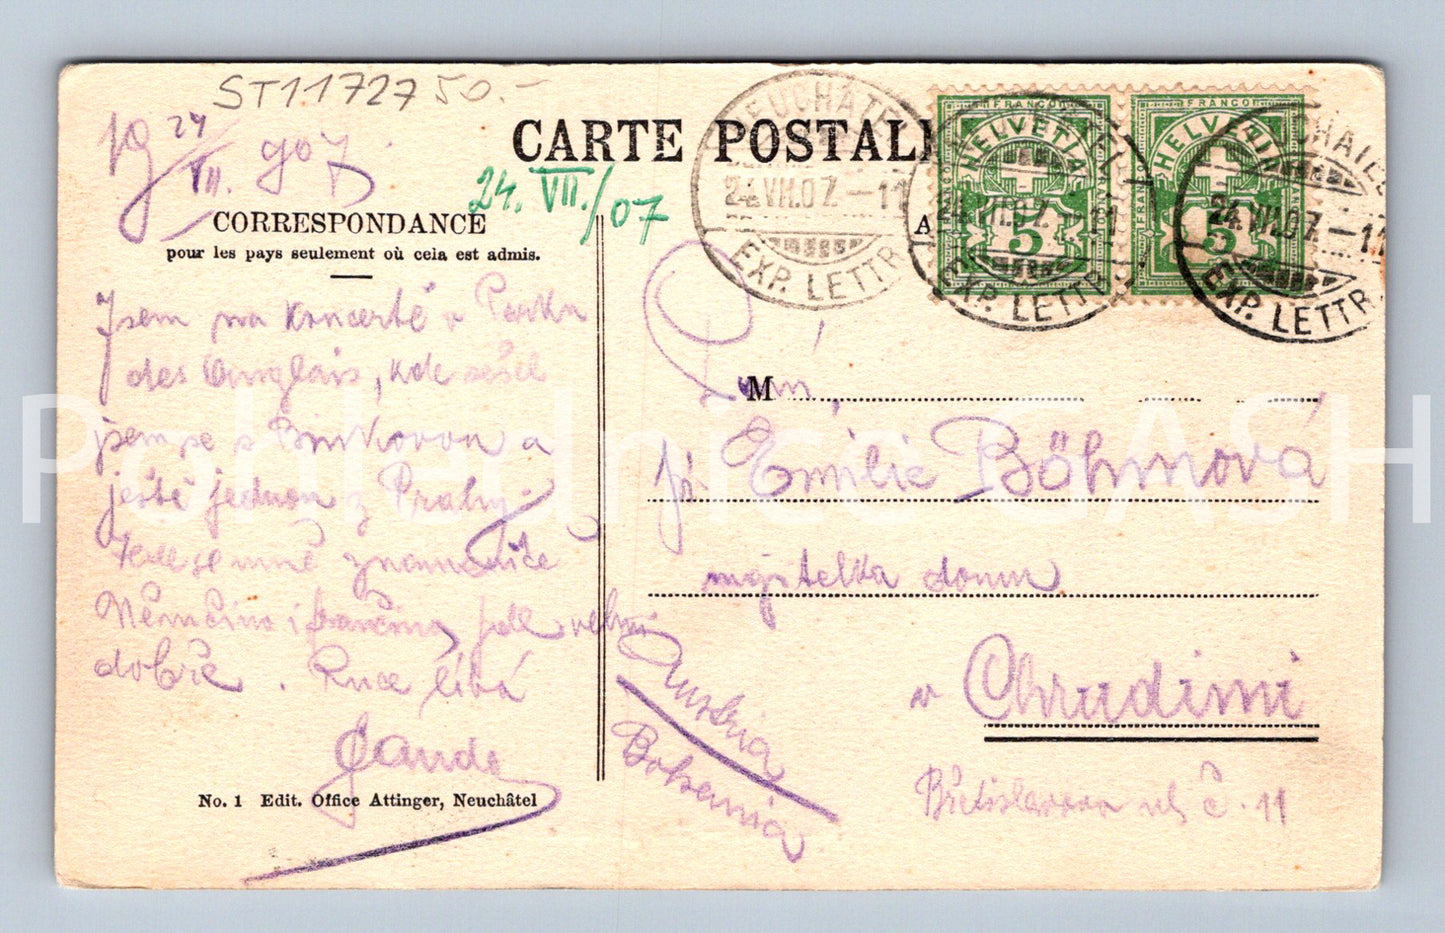 ST11727 50.-
19 24/VII. 907.
CARTE POSTALE
24. VII./07
NEUCHÂTEL
24.VII.07.—11
EXP. LETTR.
FRANCO
HELVETIA
5
24.VII.07.—11
EXP. LETTR.
FRANCO
HELVETIA
5
NEUCHÂTEL
24.VII.07.—11
EXP. LETTR.
CORRESPONDANCE
pour les pays seulement où cela est admis.
Jsem na koncertě v Parku
des Anglais, kde sešel
jsem se s Brukovou a
ještě jednou z Prahy.
Vede se mně znamenitě
Němčina i frančina jde velmi
dobře. Ruce líbá
No. 1 Edit. Office Attinger, Neuchâtel
M
Emilie Böhmová
majitelka domu
v Chrudimi
Břetislavova ul. č. 11
Austria
Bohemia
Pohlednice GASH